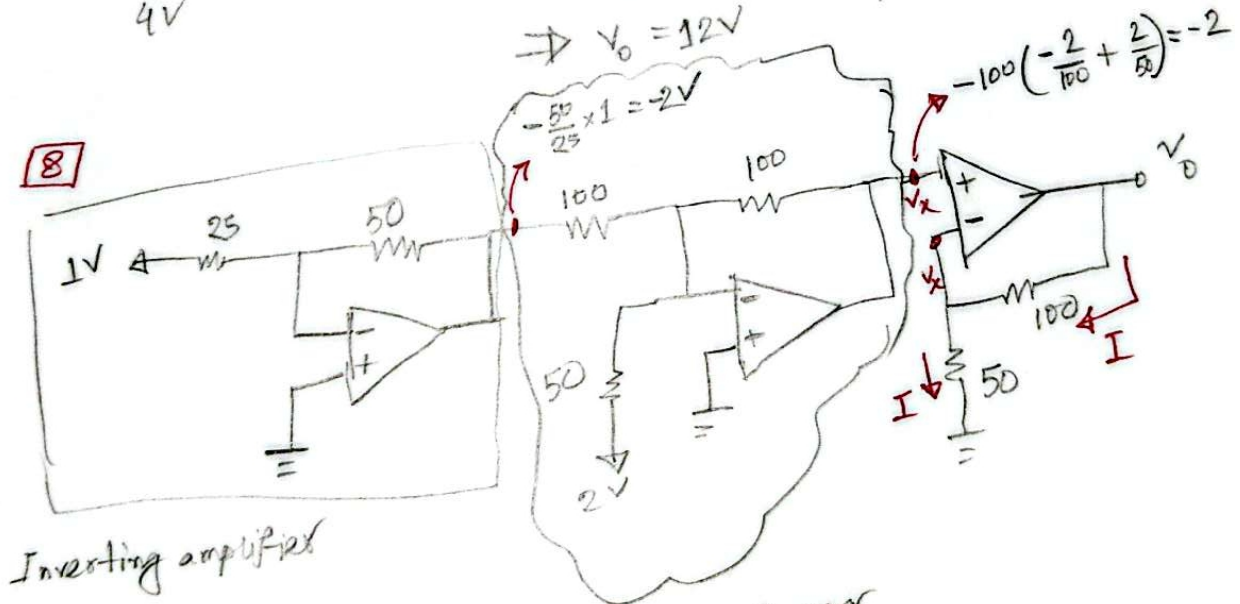 4V
⇒ V₀ = 12V
-100(-2/100 + 2/50) = -2
-50/25 × 1 = -2V
8
25
50
100
100
V₀
1V
Vx
+
-
Vx
-
+
-
+
100
I
50
I
50
2V
Inverting amplifier